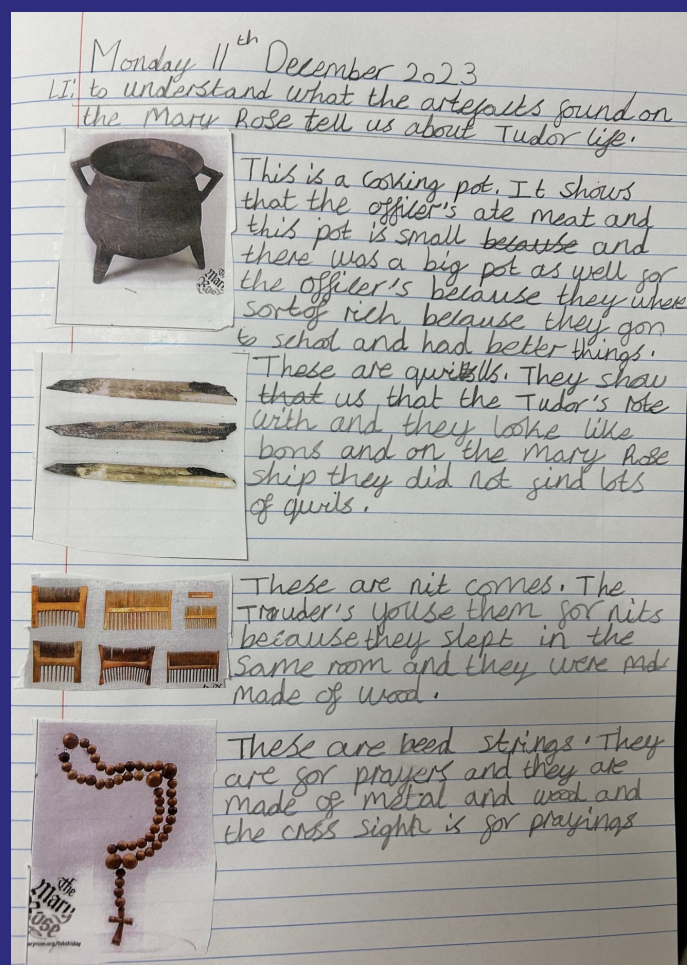 Monday 11th December 2023
LI: to understand what the artefacts found on
the Mary Rose tell us about Tudor life.
This is a cooking pot. It shows
that the officer's ate meat and
this pot is small because and
there was a big pot as well for
the officer's because they where
sortof rich because they gon
to school and had better things.
the
Mary
Rose
These are quills. They show
that us that the Tudor's rote
with and they looke like
bons and on the Mary Rose
ship they did not find lots
of quils.
These are nit comes. The
Trouder's youse them for nits
because they slept in the
same room and they were mad
made of wood.
These are beed strings. They
are for prayers and they are
made of metal and wood and
the cross sighn is for prayings
the
Mary
Rose